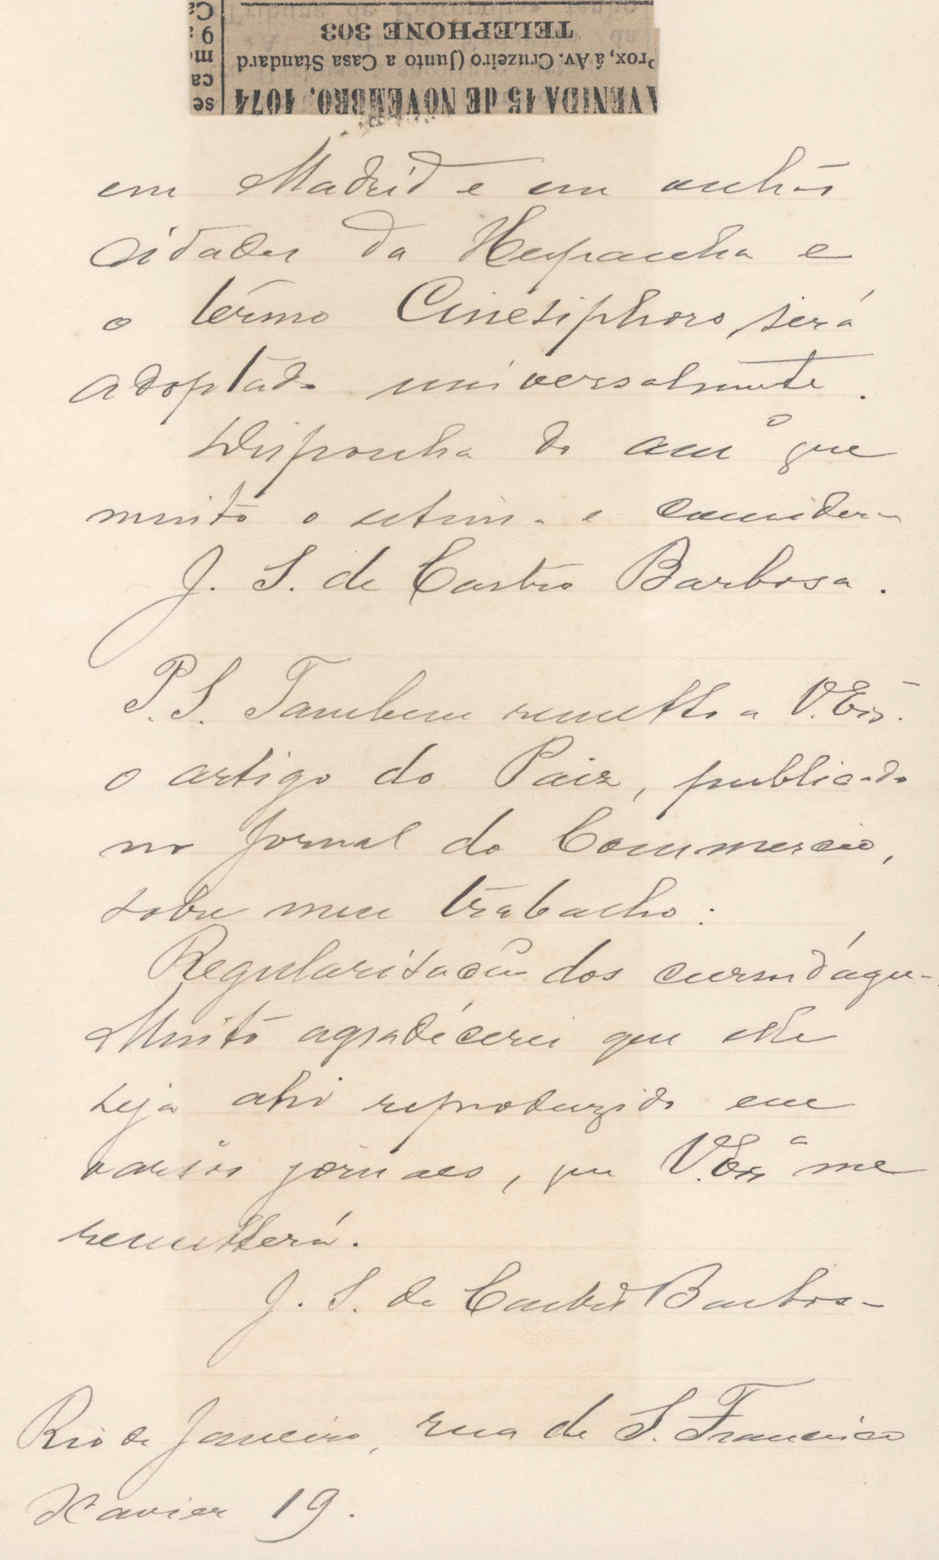 TELEPHONE 303
Prox, á Av. Cruzeiro (Junto a Casa Standard
AVENIDA 15 de NOVEMBRO, 1074
Ca
9 a
m
ca
se
em Madrid e em outras
cidades da Hespanha e
o termo Cinesiphoro será
adoptado universalmente.
Disponha do amº que
muito o estima e considera
J. S. de Castro Barbosa.
P.S. Tambem remetto a V. Exª.
o artigo do Paiz, publicado
no Jornal do Commercio,
sobre meu trabalho:
Regularisação dos cursos d'agua.
Muito agradecerei que elle
seja ahi reproduzido em
varios jornaes, que V. Exª me
remetterá.
J. S. de Castro Barbosa
Rio de Janeiro, rua de S. Francisco
Xavier 19.